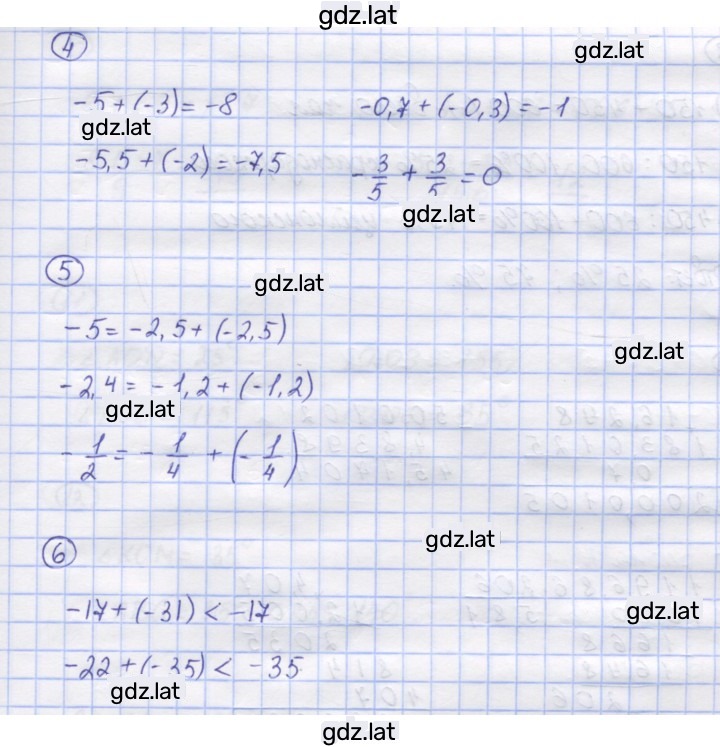 gdz.lat
4
gdz.lat
-5+(-3)=-8 -0,7+(-0,3)=-1
gdz.lat
-5,5+(-2)=-7,5 -3/5+3/5=0
gdz.lat
5
gdz.lat
-5=-2,5+(-2,5)
gdz.lat
-2,4=-1,2+(-1,2)
gdz.lat
-1/2=-1/4+(-1/4)
gdz.lat
6
-17+(-31)<-17
gdz.lat
-22+(-25)<-35
gdz.lat
gdz.lat